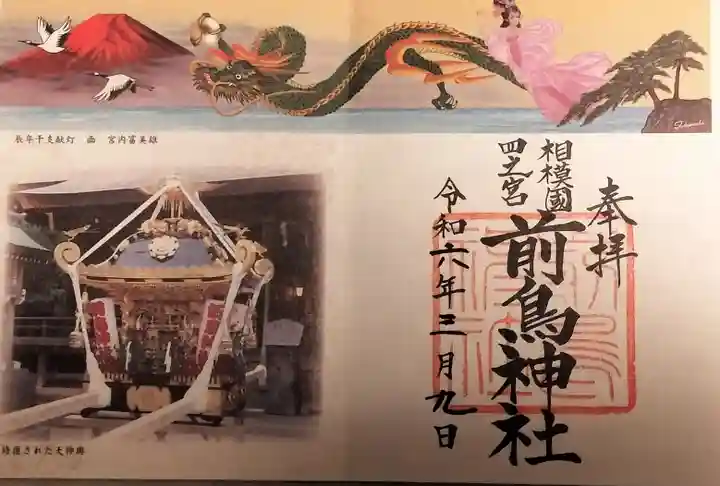 奉拝
相模國
四之宮
前鳥神社
令和六年三月九日
辰年干支献灯 画 宮内富美雄
修復された大神輿